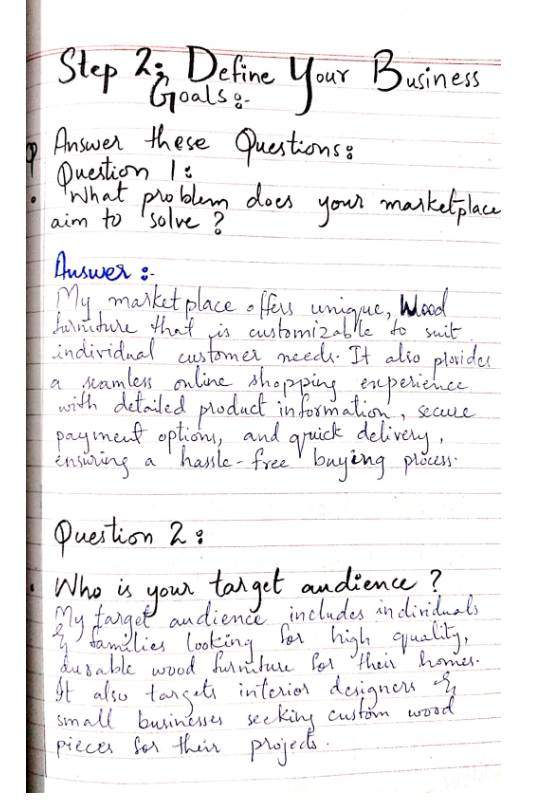 Step 2: Define Your Business
Goals:-
Answer these Questions:
Question 1:
What problem does your marketplace
aim to solve?
Answer:-
My marketplace offers unique, Wood
furniture that is customizable to suit
individual customer needs. It also provides
a seamless online shopping experience
with detailed product information, secure
payment options, and quick delivery,
ensuring a hassle-free buying process.
Question 2:
Who is your target audience?
My target audience includes individuals
& families looking for high quality,
durable wood furniture for their homes.
It also targets interior designers &
small businesses seeking custom wood
pieces for their projects.